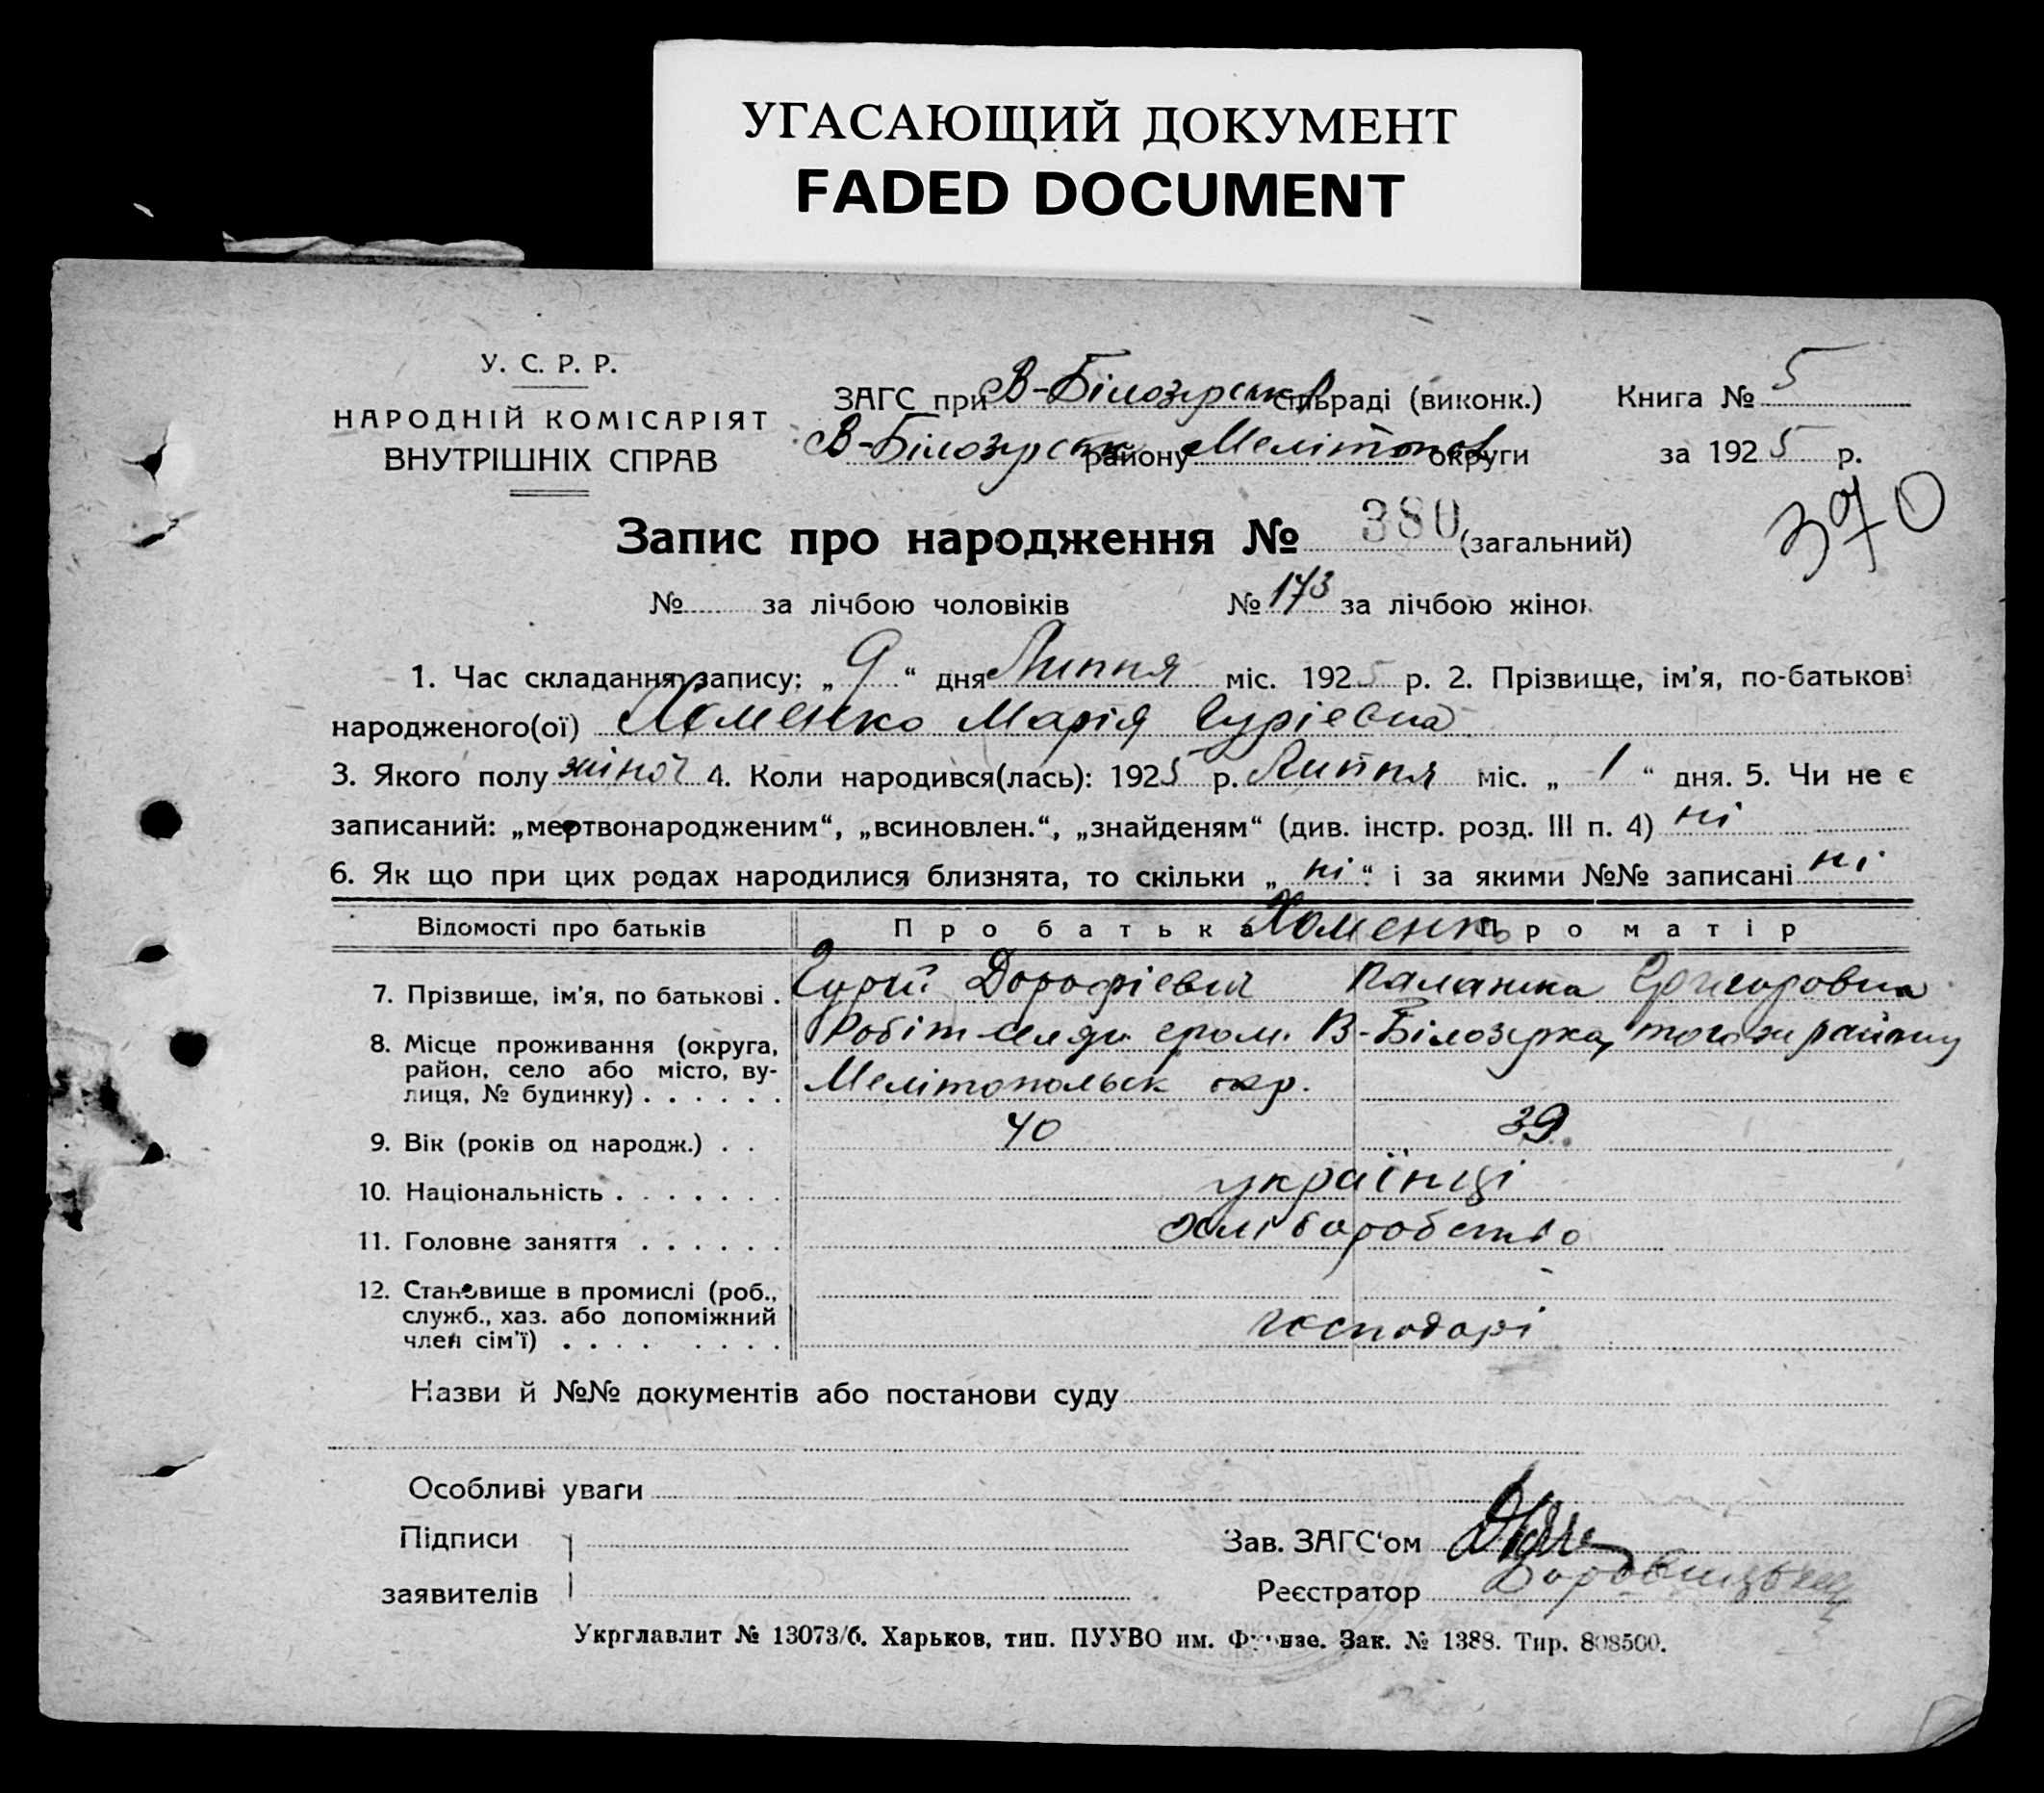 УГАСАЮЩИЙ ДОКУМЕНТ
FADED DOCUMENT
У. С. Р. Р.
НАРОДНІЙ КОМІСАРІЯТ
ВНУТРІШНІХ СПРАВ
ЗАГС при В-Білозірськ сільраді (виконк.)
В-Білозірськ району Мелітоп округи
Книга № 5
за 1925 р.
370
Запис про народження № 380 (загальний)
№ за лічбою чоловіків № 173 за лічбою жінок
1. Час складання запису: „ 9 “ дня Липня міс. 1925 р. 2. Прізвище, ім'я, по-батькові
народженого(ої) Хоменко Марія Гуріевна
3. Якого полу жіноч 4. Коли народився(лась): 1925 р. Липня міс. „ 1 “ дня. 5. Чи не є
записаний: „мертвонародженим“, „всиновлен.“, „знайденям“ (див. інстр. розд. III п. 4) ні
6. Як що при цих родах народилися близнята, то скільки „ ні “ і за якими №№ записані ні
Відомості про батьків Про батька Хоменко Про матір
7. Прізвище, ім'я, по батькові . Гурій Дорофіевич Палажка
8. Місце проживання (округа, район, село або місто, вулиця, № будинку) . . . . . . гром. В-Білозірка, того ж району
Мелітопольск окр.
9. Вік (років од народж.) . . 40 39
10. Національність . . . . . . . українці
11. Головне заняття . . . . . . хліборобство
12. Становище в промислі (роб.,
служб., хаз. або допоміжний
член сім'ї) . . . . . . . . господарі
Назви й №№ документів або постанови суду
Особливі уваги
Підписи
заявителів
Зав. ЗАГС'ом
Реєстратор
Укрглавлит № 13073/б. Харьков, тип. ПУУВО им. Фрунзе. Зак. № 1388. Тир. 808500.